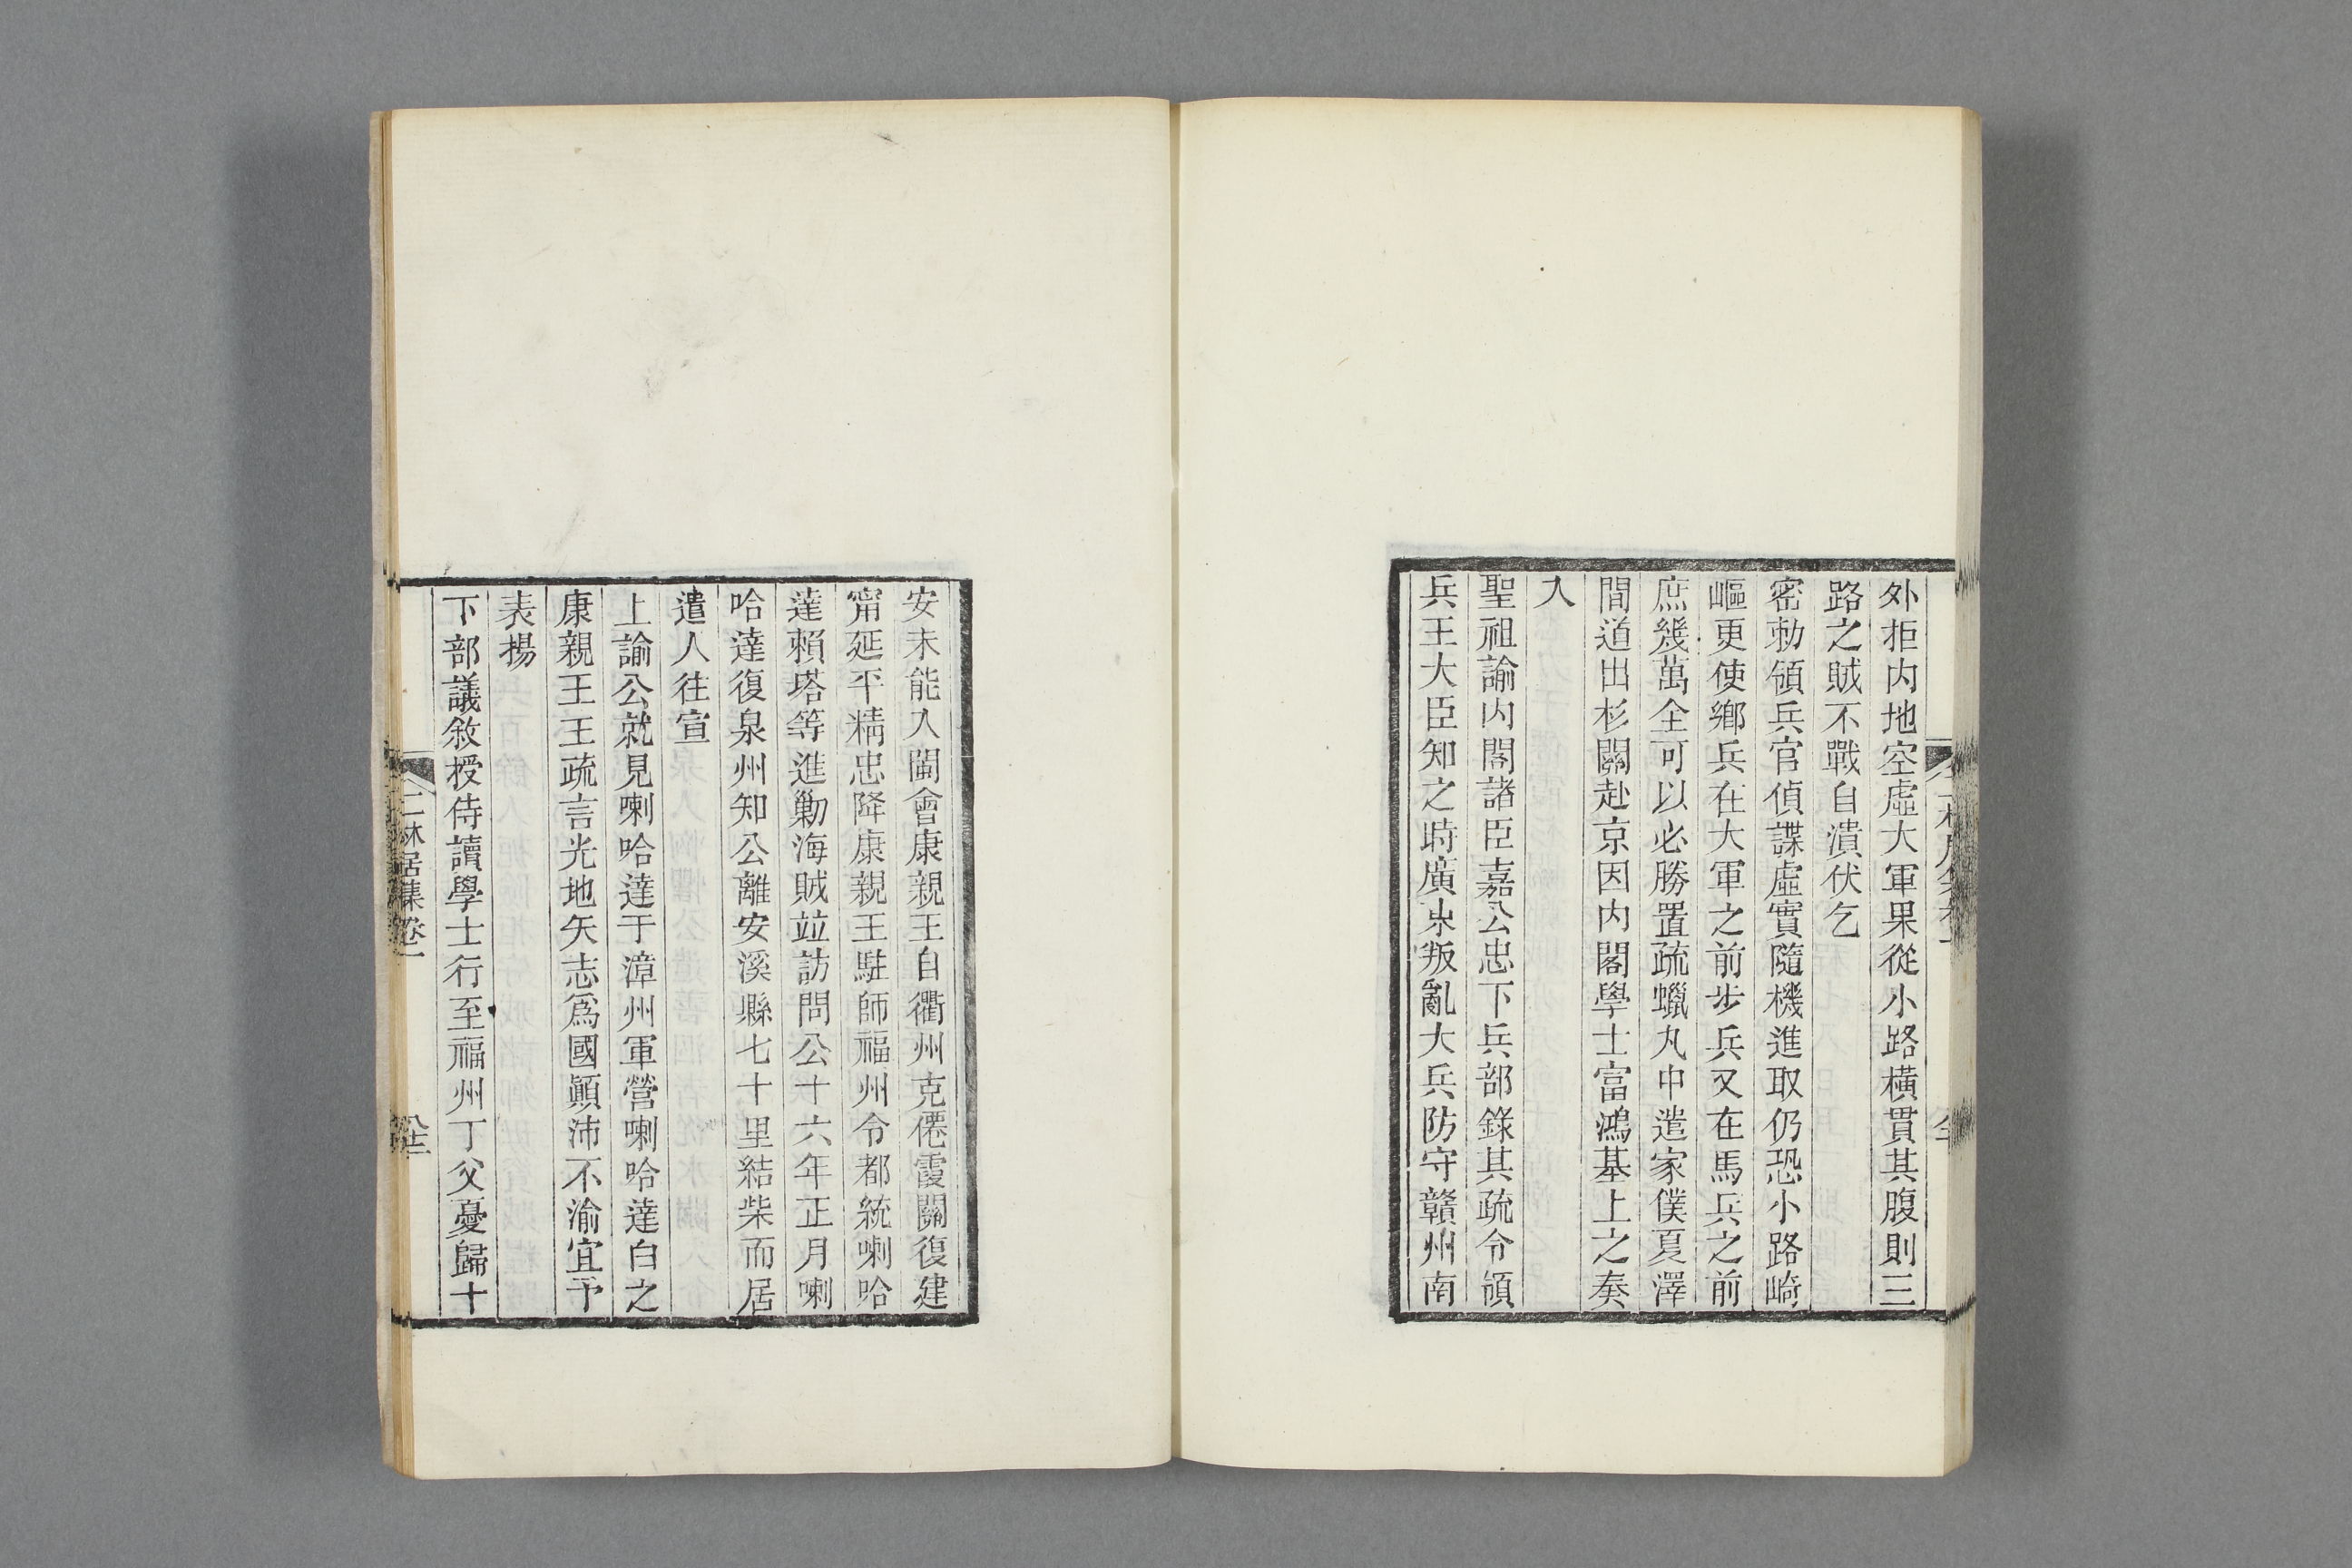 外拒内地空虛大軍果從小路橫貫其腹則三
路之賊不戰自潰伏乞
密勅領兵官偵諜虛實隨機進取仍恐小路崎
嶇更使鄕兵在大軍之前步兵又在馬兵之前
庶幾萬全可以必勝置疏蠟丸中遣家僕夏澤
間道出杉關赴京因内閣學士富鴻基上之奏
入
聖祖諭内閣諸臣嘉公忠下兵部錄其疏令領
兵王大臣知之時廣東叛亂大兵防守贛州南
安未能入閩會康親王自衢州克僊霞關復建
甯延平精忠降康親王駐師福州令都統喇哈
達賴塔等進勦海賊竝訪問公十六年正月喇
哈達復泉州知公離安溪縣七十里結柴而居
遣人往宣
上諭公就見喇哈達于漳州軍營喇哈達白之
康親王王疏言光地矢志爲國顚沛不渝宜予
表揚
下部議敘授侍讀學士行至福州丁父憂歸十
二林居集卷一